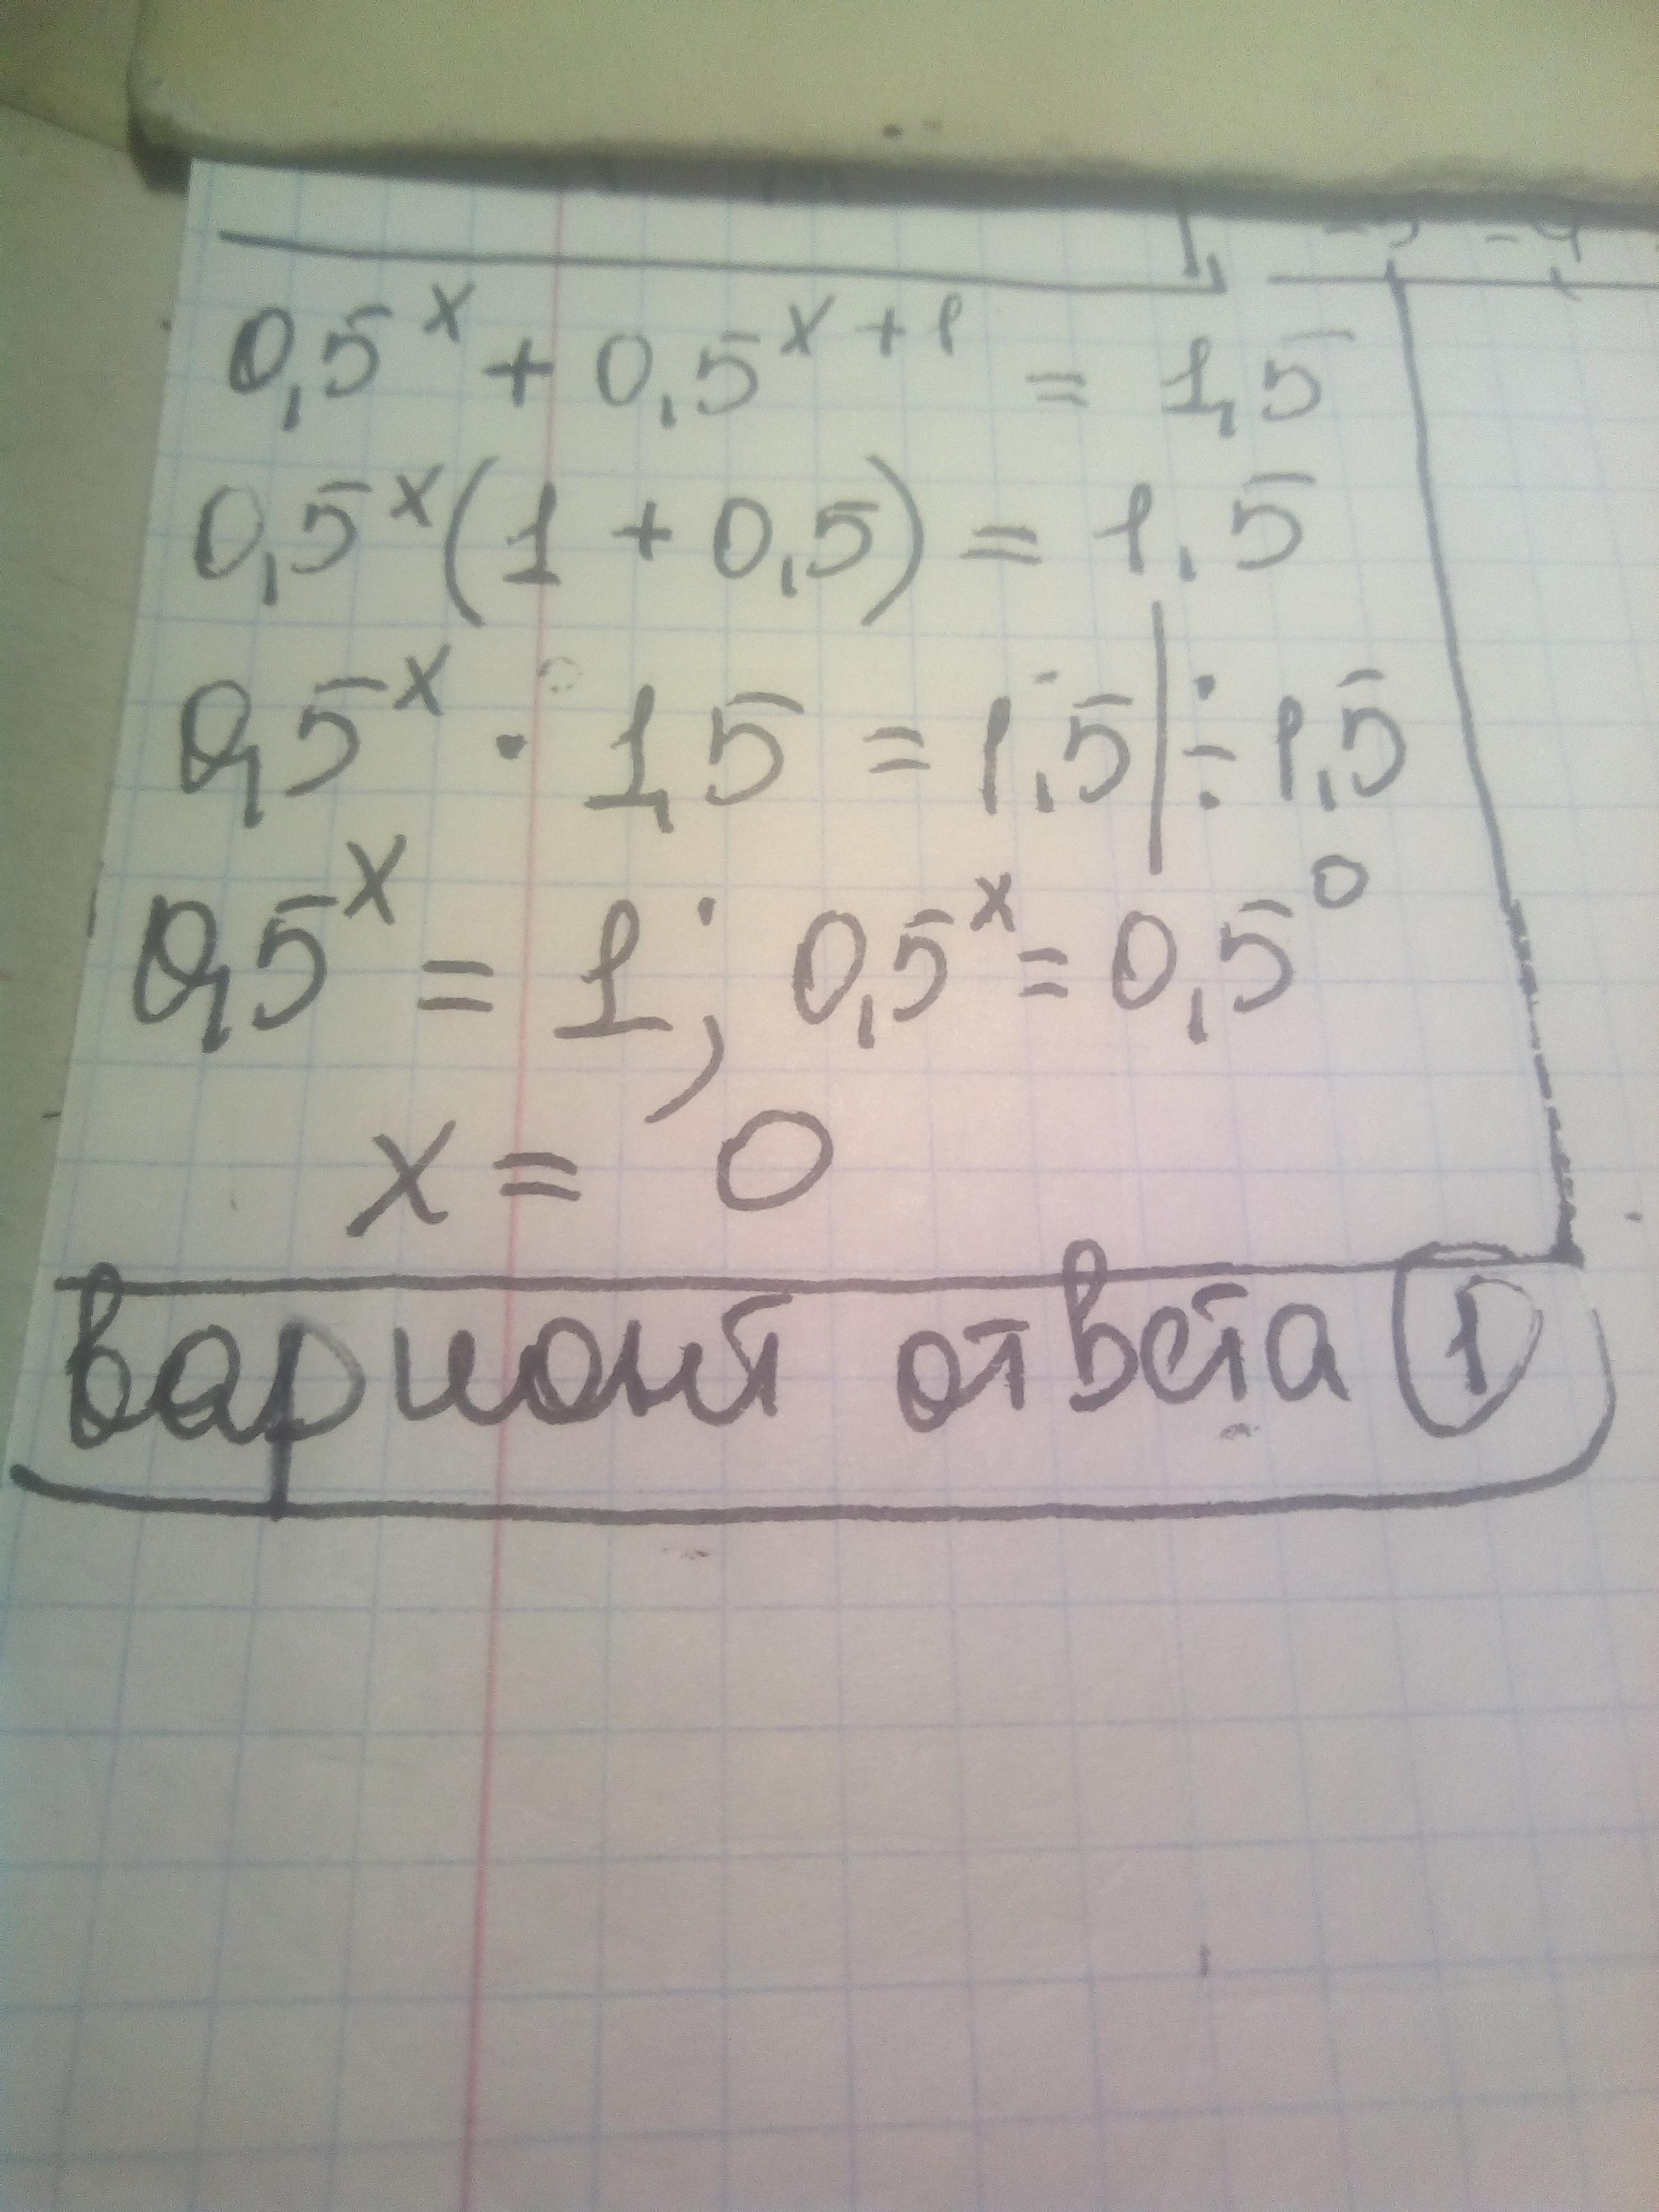 0,5^x + 0,5^{x+1} = 1,5
0,5^x (1 + 0,5) = 1,5
0,5^x · 1,5 = 1,5 | ÷ 1,5
0,5^x = 1; 0,5^x = 0,5^0
x = 0
вариант ответа 1